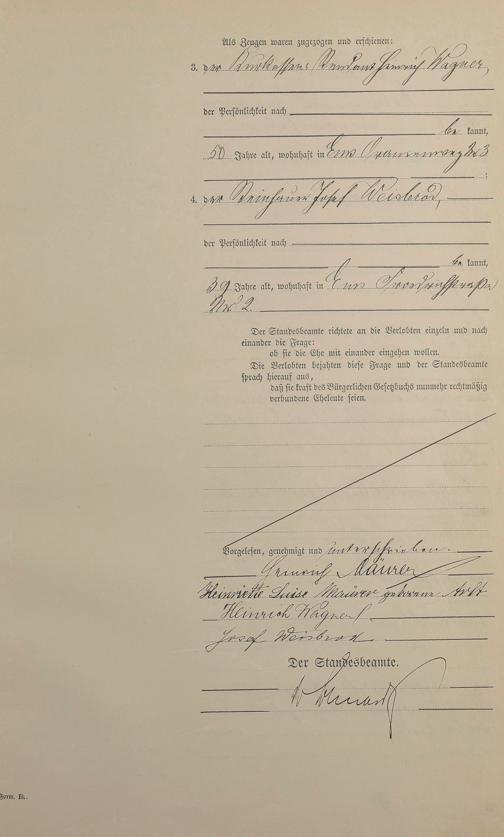 Als Zeugen waren zugezogen und erschienen:
3. der Kurkassen Rendant Heinrich Wagner,
der Persönlichkeit nach
be kannt,
50 Jahre alt, wohnhaft in Ems Oranienweg No 3
;
4. der Steinhauer Josef Weisbrod,
der Persönlichkeit nach
be kannt,
39 Jahre alt, wohnhaft in Ems
No 2.
Der Standesbeamte richtete an die Verlobten einzeln und nach
einander die Frage:
ob sie die Ehe mit einander eingehen wollen.
Die Verlobten bejahten diese Frage und der Standesbeamte
sprach hierauf aus,
daß sie kraft des Bürgerlichen Gesetzbuchs nunmehr rechtmäßig
verbundene Eheleute seien.
Vorgelesen, genehmigt und unterschrieben.
Heinrich Mäurer
Heinriette Luise Maürer geborene Ardt
Heinrich Wagner
Josef Weisbrod
Der Standesbeamte.
Form. B.